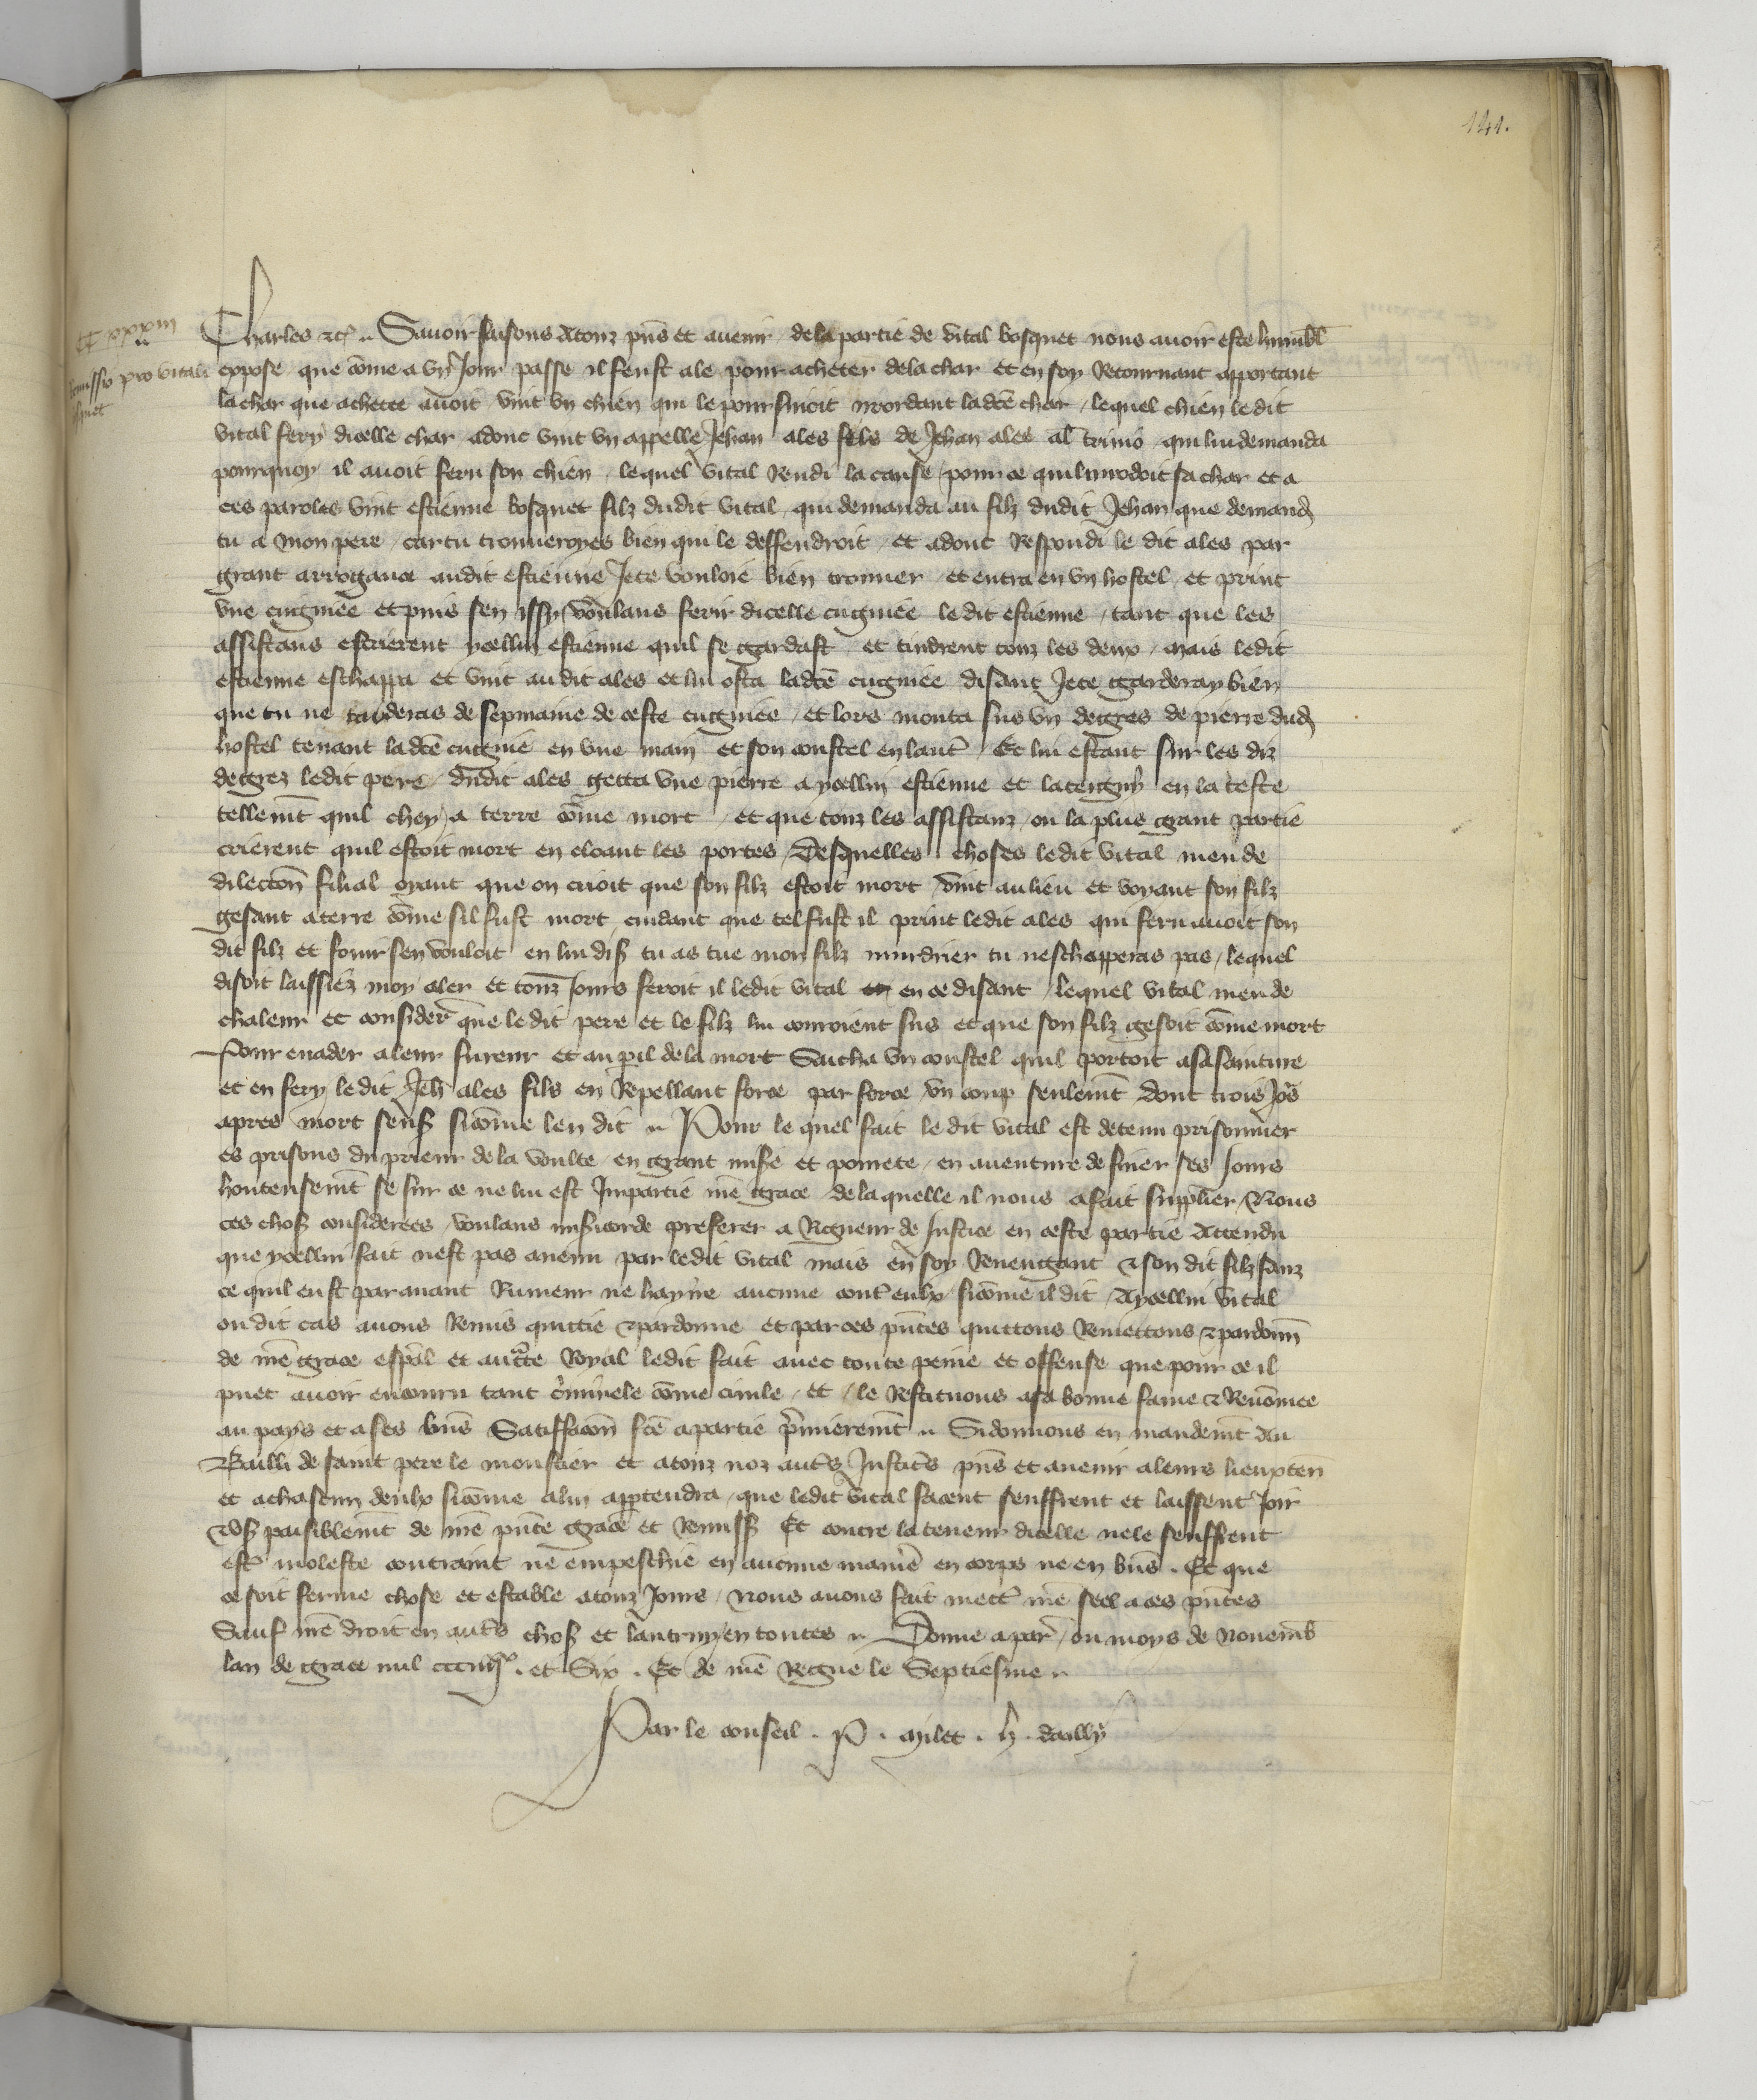 141.
CC XXXIII
Remissio pro vitali
bosquet
Charles etc. Savoir faisons a touz pns et avenir de la partie de vital bosquet nous avoir este humblt
expose que come a un jour passe il feust ale pour acheter de la char et en soy retournant apportant
la char que achetee avoit vint un chien qui le poursuioit mordant ladce char lequel chien ledit
vital fery dicelle char adonc vint un appelle Jehan ales filz de Jehan ales al trimo qui lui demanda
pourquoy il avoit feru son chien lequel vital rendi la cause pour ce quil mordoit sa char et a
ces paroles vint estienne bosquet filz dudit vital qui demanda au filz dudit Jehan que demand
tu a mon pere car tu trouveroyes bien qui le deffendroit et adonc respondi le dit ales par
grant arrogance audit estienne Je te vouloie bien trouver et entra en un hostel et print
une cugniee et puis sen issy voulans ferir dicelle cugniee le dit estienne tant que les
assistans escrierent ycellui estienne quil se gardast et tindrent touz les deux mais ledit
estienne eschappa et vint audit ales et lui osta ladce cugniee disant Je te garderay bien
que tu ne tauderas de sepmaine de ceste cugniee et lors monta sus un degres de pierre dud
hostel tenant ladce cugnie en une main et son coustel en laut Et lui estant sur les diz
degrez ledit pere dudit ales getta une pierre a ycellui estienne et latengny en la teste
tellemt quil chey a terre come mort et que touz les assistanz ou la plus grant partie
crierent quil estoit mort en cloant les portes Desquelles choses ledit vital meu de
dilection filial oyant que on crioit que son filz estoit mort vint au lieu et voyant son filz
gesant a terre come sil fust mort cuidant que tel fust il print ledit ales qui feru avoit son
dit filz et fouir sen vouloit en lui dis tu as tue mon filz murdrier tu neschapperas pas lequel
disoit laissiez moy aler et touz jours feroit il ledit vital en ce disant lequel vital meu de
chaleur et consider que le dit pere et le filz lui couroient sus et que son filz gesoit come mort
Pour evader a leur fureur et au peril de la mort Saicha un coustel quil portoit a sa sainture
et en fery le dit Jeh ales filz en repellant force par force un coup seulemt dont trois jos
apres mort sens sicome len dit Pour le quel fait le dit vital est detenu prisonnier
es prisons du prieur de la voulte en grant mise et povrete en aventure de finer ses jours
honteusemt se sur ce ne lui est Impartie nre grace de laquelle il nous a fait supplier Nous
ces chos considerees voulans misericorde preferer a Rigueur de Justice en ceste partie Attendu
que ycellui fait nest pas avenu par ledit vital mais en soy revengant et son dit filz sanz
ce quil eust par avant Rumeur ne hayne aucune cont eulx sicome il dit Aycellui vital
ou dit cas avons remis quittie et pardonne et par ces pntes quittons remettons et pardonn
de nre grace espal et auctte royal ledit fait avec toute peine et offense que pour ce il
puet avoir encouru tant criminele come civile et le restituons a sa bonne fame et renomee
au pays et a ses biens Satiffacon fce a partie primierement Si donnons en mandemt Au
Bailli de saint pere le moustier et a touz noz autres Justic pns et avenir a leurs lieuxten
et a chascun deulx sicome a lui appartendra que ledit vital facent seuffrent et laissent Joir
et us paisiblemt de nre pnte grace et remiss Et contre la teneur dicelle ne le seuffrent
est moleste contraint ne empeschie en aucune maniere en corps ne en biens. Et que
ce soit ferme chose et estable a touz jours Nous avons fait mett nre seel a ces pntes
Sauf nre droit en autres chos et lautruy en toutes Donne a par ou moys de Novemb
lan de grace mil cccIIIIxx. et Six. Et de nre Regne le Septiesme
Par le conseil. P. Milet. h. dailly